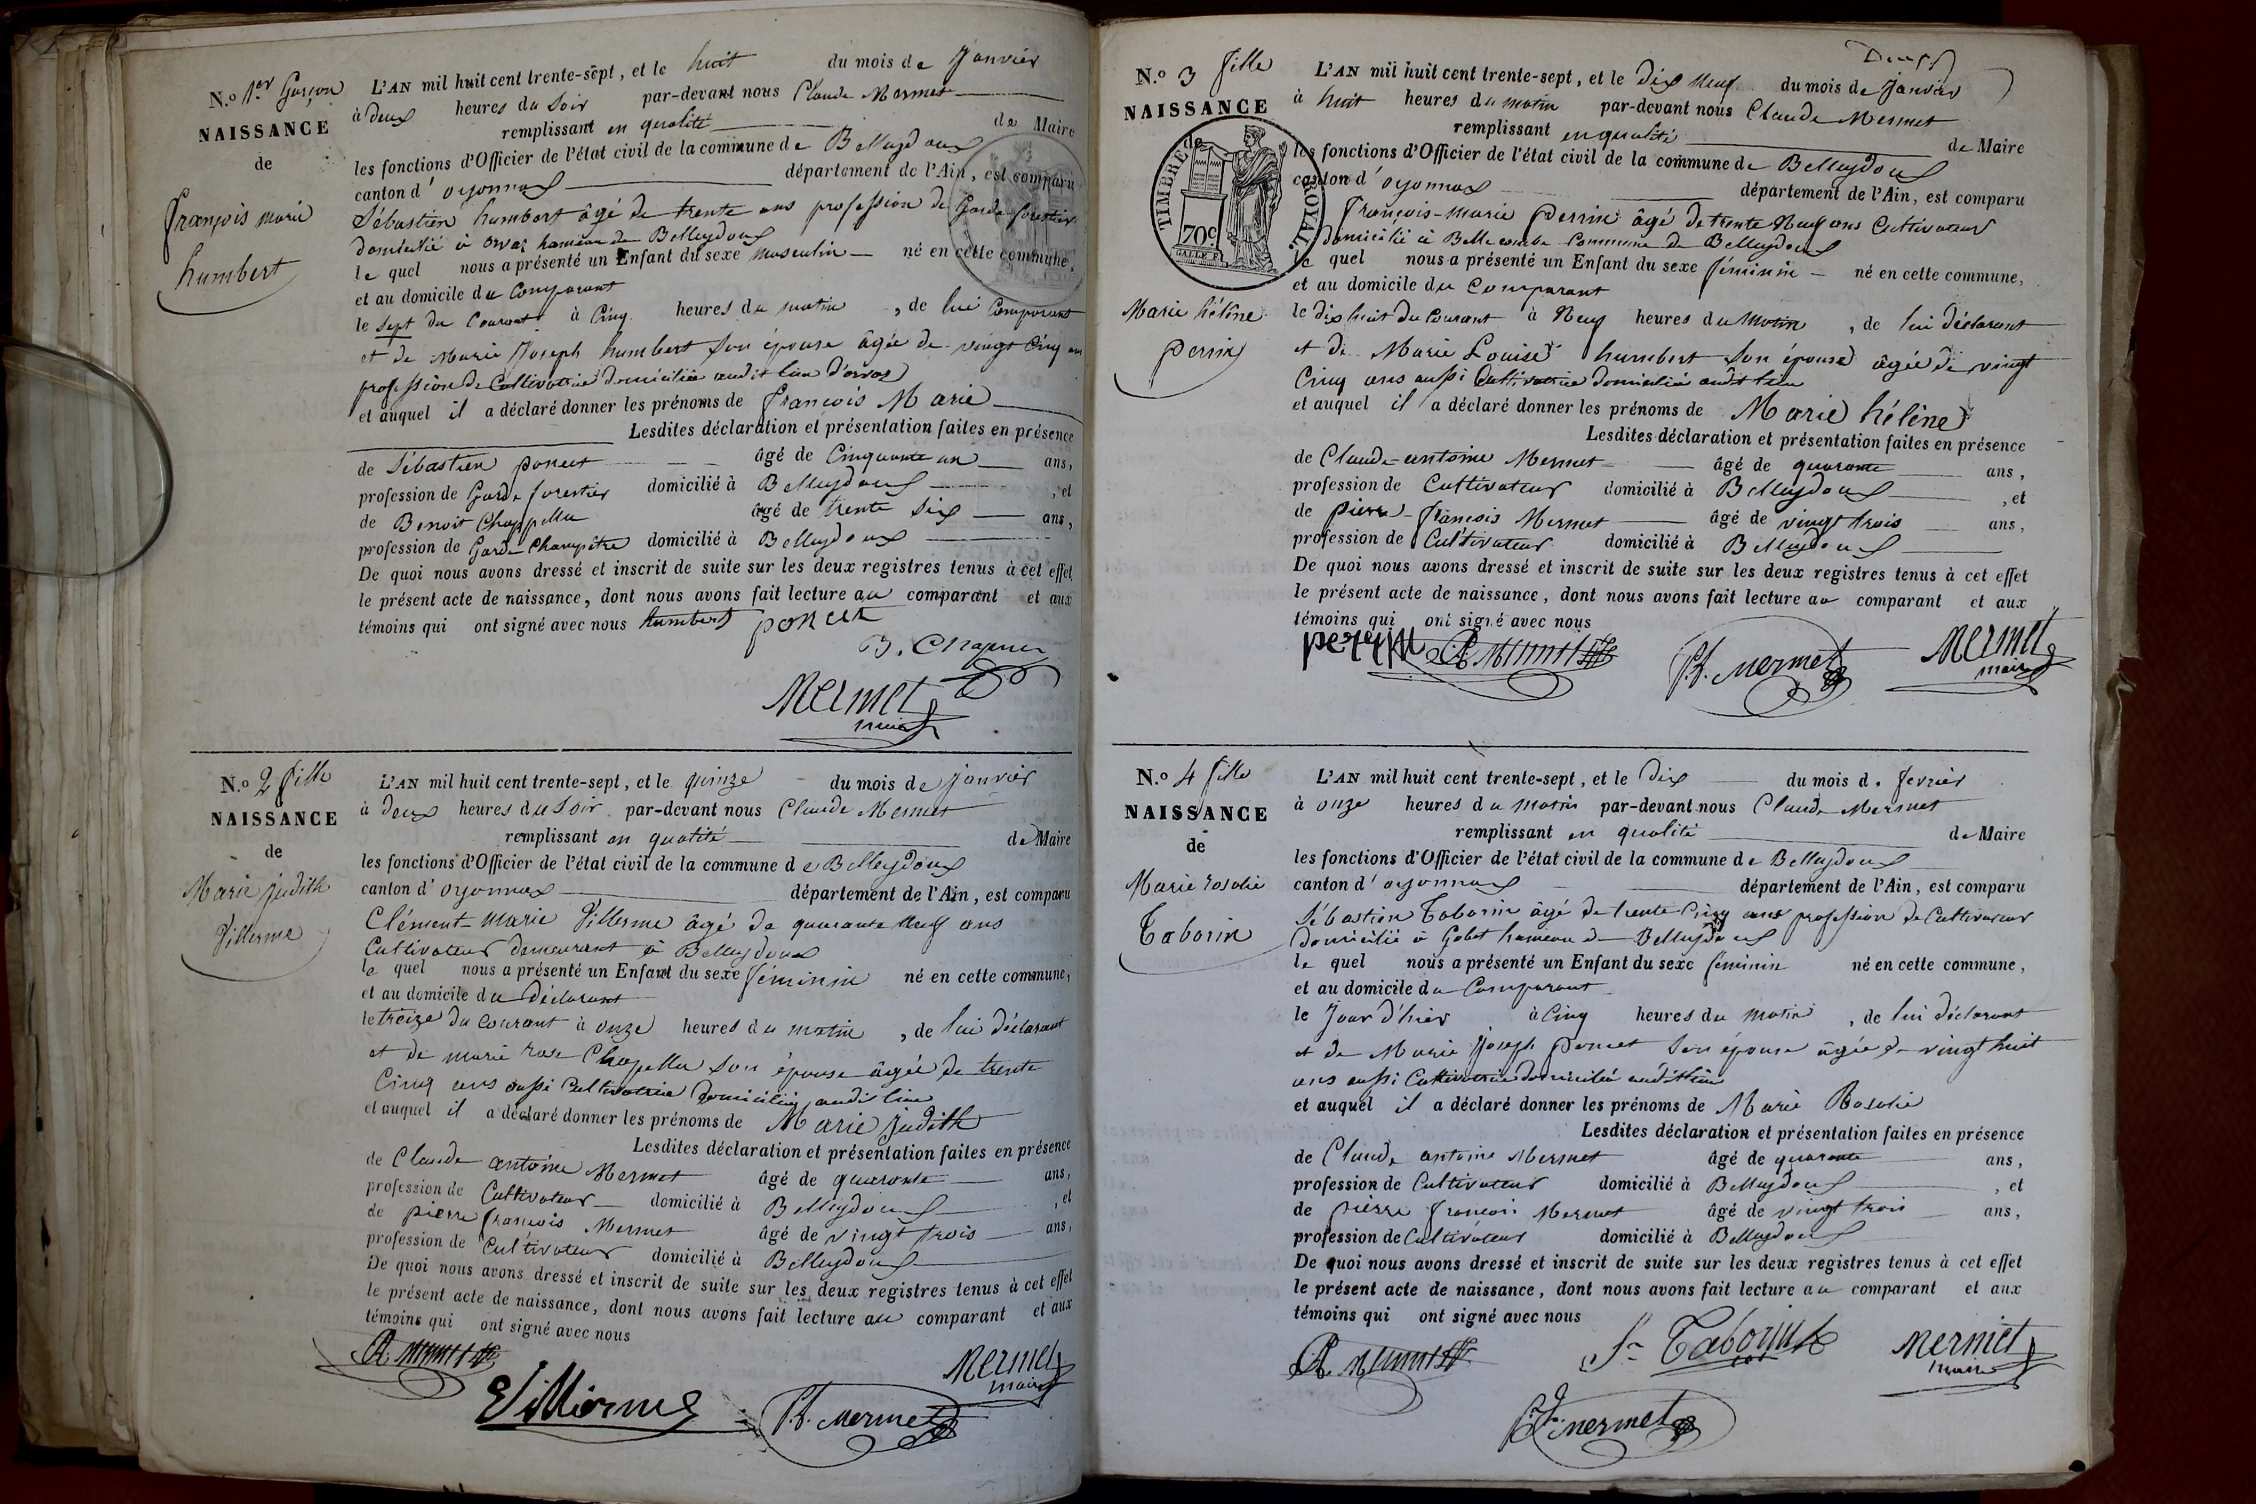 N.o 1.er Garçon
NAISSANCE
de
françois marie
humbert
L'AN mil huit cent trente-sept, et le huit du mois de Janvier
à deux heures du Soir par-devant nous Claude Mermet
remplissant en qualité de Maire
les fonctions d'Officier de l'état civil de la commune de Belleydoux
canton d'oyonnax département de l'Ain, est comparu
Sébastien humbert âgé de trente ans profession de Garde forestier
domicilié à orvaz hameau de Belleydoux
le quel nous a présenté un Enfant du sexe masculin né en cette commune,
et au domicile du Comparant
le sept du Courant à Cinq heures du matin, de lui Comparant
et de Marie Joseph humbert son épouse âgée de vingt Cinq ans
profession de Cultivatrice domiciliée audit lieu d'orvaz
et auquel il a déclaré donner les prénoms de françois Marie
Lesdites déclaration et présentation faites en présence
de Sébastien poncet âgé de Cinquante un ans,
profession de Garde forestier domicilié à Belleydoux, et
de Benoit Chappellu âgé de trente Six ans,
profession de Garde Champêtre domicilié à Belleydoux
De quoi nous avons dressé et inscrit de suite sur les deux registres tenus à cet effet
le présent acte de naissance, dont nous avons fait lecture au comparant et aux
témoins qui ont signé avec nous humbert poncet
Mermet
maire
N.o 2 fille
NAISSANCE
de
Marie judith
Villerme
L'AN mil huit cent trente-sept, et le quinze du mois de janvier
à deux heures du Soir par-devant nous Claude Mermet
remplissant en qualité de Maire
les fonctions d'Officier de l'état civil de la commune de Belleydoux
canton d'oyonnax département de l'Ain, est comparu
Clément-marie Villerme âgé de quarante neuf ans
Cultivateur demeurant à Belleydoux
le quel nous a présenté un Enfant du sexe féminin né en cette commune,
et au domicile du déclarant
le treize du courant à onze heures du matin, de lui déclarant
et de marie rose Chapellu son épouse âgée de trente
Cinq ans aussi Cultivatrice domiciliée audit lieu
et auquel il a déclaré donner les prénoms de Marie judith
Lesdites déclaration et présentation faites en présence
de Claude antoine Mermet âgé de quarante ans,
profession de Cultivateur domicilié à Belleydoux, et
de pierre françois Mermet âgé de vingt trois ans,
profession de Cultivateur domicilié à Belleydoux
De quoi nous avons dressé et inscrit de suite sur les deux registres tenus à cet effet
le présent acte de naissance, dont nous avons fait lecture au comparant et aux
témoins qui ont signé avec nous
Mermet
maire
Villerme
Mermet
Deux
N.o 3 fille
NAISSANCE
de
TIMBRE ROYAL.
70c
Marie hélène
perrin
L'AN mil huit cent trente-sept, et le dix neuf du mois de janvier
à huit heures du matin par-devant nous Claude Mermet
remplissant en qualité de Maire
les fonctions d'Officier de l'état civil de la commune de Belleydoux
canton d'oyonnax département de l'Ain, est comparu
françois-marie perrin âgé de trente Neuf ans Cultivateur
domicilié à Belle combe Commune de Belleydoux
le quel nous a présenté un Enfant du sexe féminin né en cette commune,
et au domicile du Comparant
le dix huit du Courant à Neuf heures du Matin, de lui déclarant
et de Marie Louise humbert son épouse âgée de vingt
Cinq ans aussi Cultivatrice domiciliée audit lieu
et auquel il a déclaré donner les prénoms de Marie hélène
Lesdites déclaration et présentation faites en présence
de Claude-antoine Mermet âgé de quarante ans,
profession de Cultivateur domicilié à Belleydoux, et
de pierre-françois Mermet âgé de vingt trois ans,
profession de Cultivateur domicilié à Belleydoux
De quoi nous avons dressé et inscrit de suite sur les deux registres tenus à cet effet
le présent acte de naissance, dont nous avons fait lecture au comparant et aux
témoins qui ont signé avec nous
perrin
Mermet
Mermet
maire
N.o 4 fille
NAISSANCE
de
Marie rosalie
Taborin
L'AN mil huit cent trente-sept, et le dix du mois de fevrier
à onze heures du matin par-devant nous Claude Mermet
remplissant en qualité de Maire
les fonctions d'Officier de l'état civil de la commune de Belleydoux
canton d'oyonnax département de l'Ain, est comparu
Sébastien Taborin âgé de trente Cinq ans profession de Cultivateur
domicilié à Gobet hameau de Belleydoux
le quel nous a présenté un Enfant du sexe féminin né en cette commune,
et au domicile du Comparant
le Jour d'hier à Cinq heures du matin, de lui déclarant
et de Marie Joseph poncet son épouse âgée de vingt huit
ans aussi Cultivatrice domiciliée audit lieu
et auquel il a déclaré donner les prénoms de Marie Rosalie
Lesdites déclaration et présentation faites en présence
de Claude antoine Mermet âgé de quarante ans,
profession de Cultivateur domicilié à Belleydoux, et
de pierre françois Mermet âgé de vingt trois ans,
profession de Cultivateur domicilié à Belleydoux
De quoi nous avons dressé et inscrit de suite sur les deux registres tenus à cet effet
le présent acte de naissance, dont nous avons fait lecture au comparant et aux
témoins qui ont signé avec nous
Taborin
Mermet
maire
Mermet